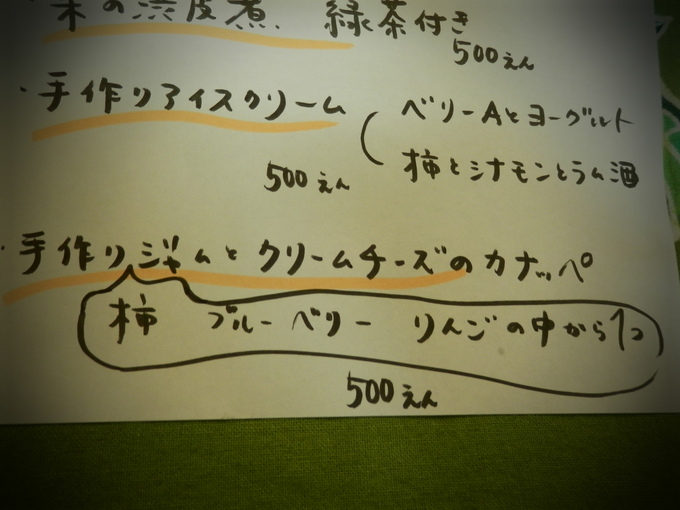 の渋皮煮 緑茶付き
500えん
・手作りアイスクリーム
ベリーAとヨーグルト
柿とシナモンとラム酒
500えん
・手作りジャムとクリームチーズのカナッペ
柿 ブルーベリー りんごの中から1つ
500えん